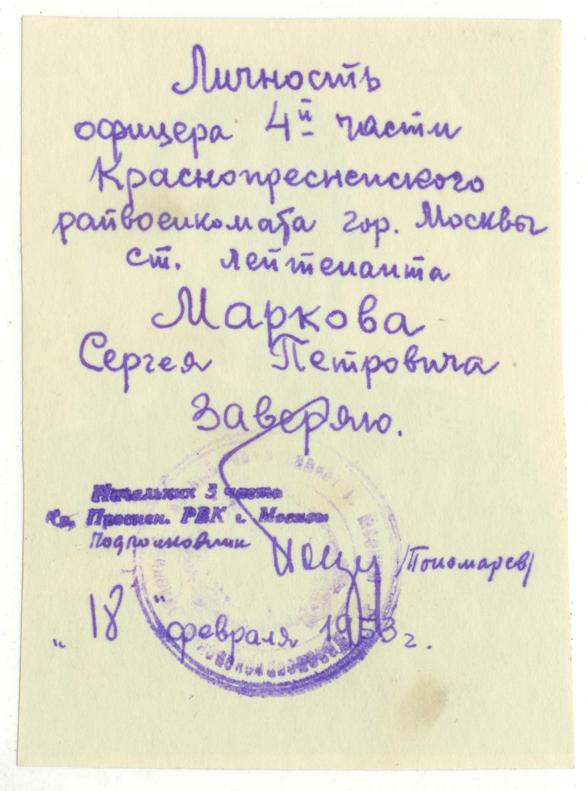 Личность
офицера 4й части
Краснопресненского
райвоенкомата гор. Москвы
ст. лейтенанта
Маркова
Сергея Петровича
Заверяю.
Начальник 3 части
Кр. Преснен. РВК г. Москвы
Подполковник
/Пономарев/
"18" февраля 1953 г.